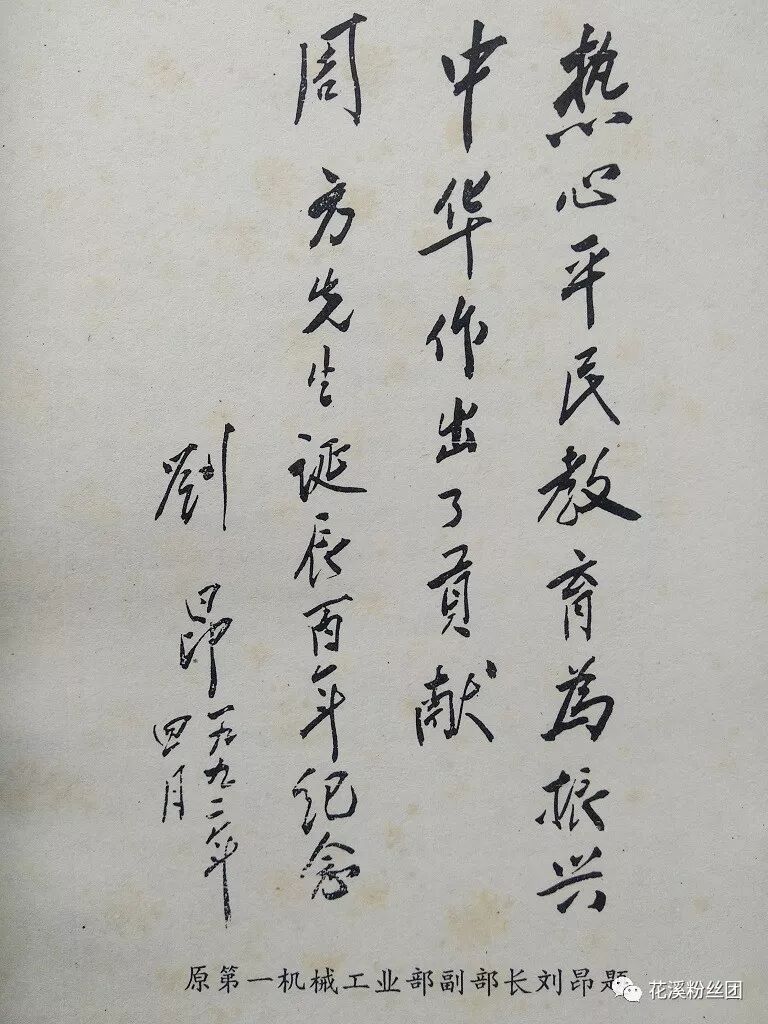 热心平民教育为振兴
中华作出了貢献
周方先生诞辰百年纪念
劉昂
一九九二年
四月
原第一机械工业部副部长刘昂题
花溪粉丝团